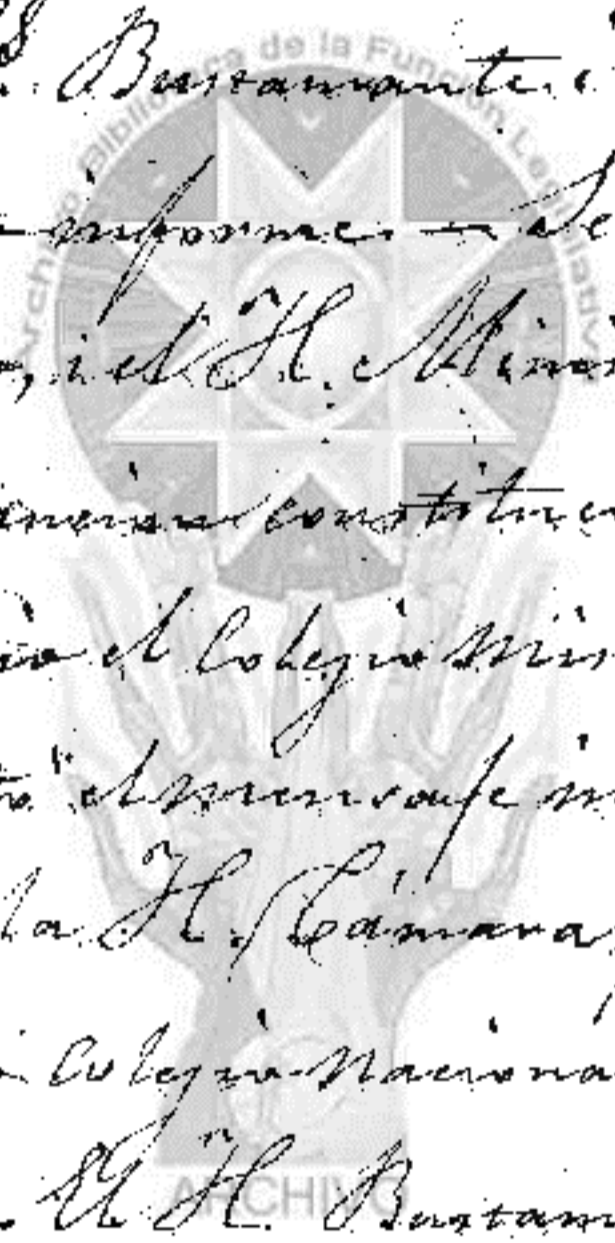 Archivo Biblioteca de la Función Legislativa
Bustamante.
informe. — Se
, i el H. Minis
constitu
el Colegio Mi
el mensaje
la H. Cámara
Colegio Naciona
El H. Bustam
ARCHIVO